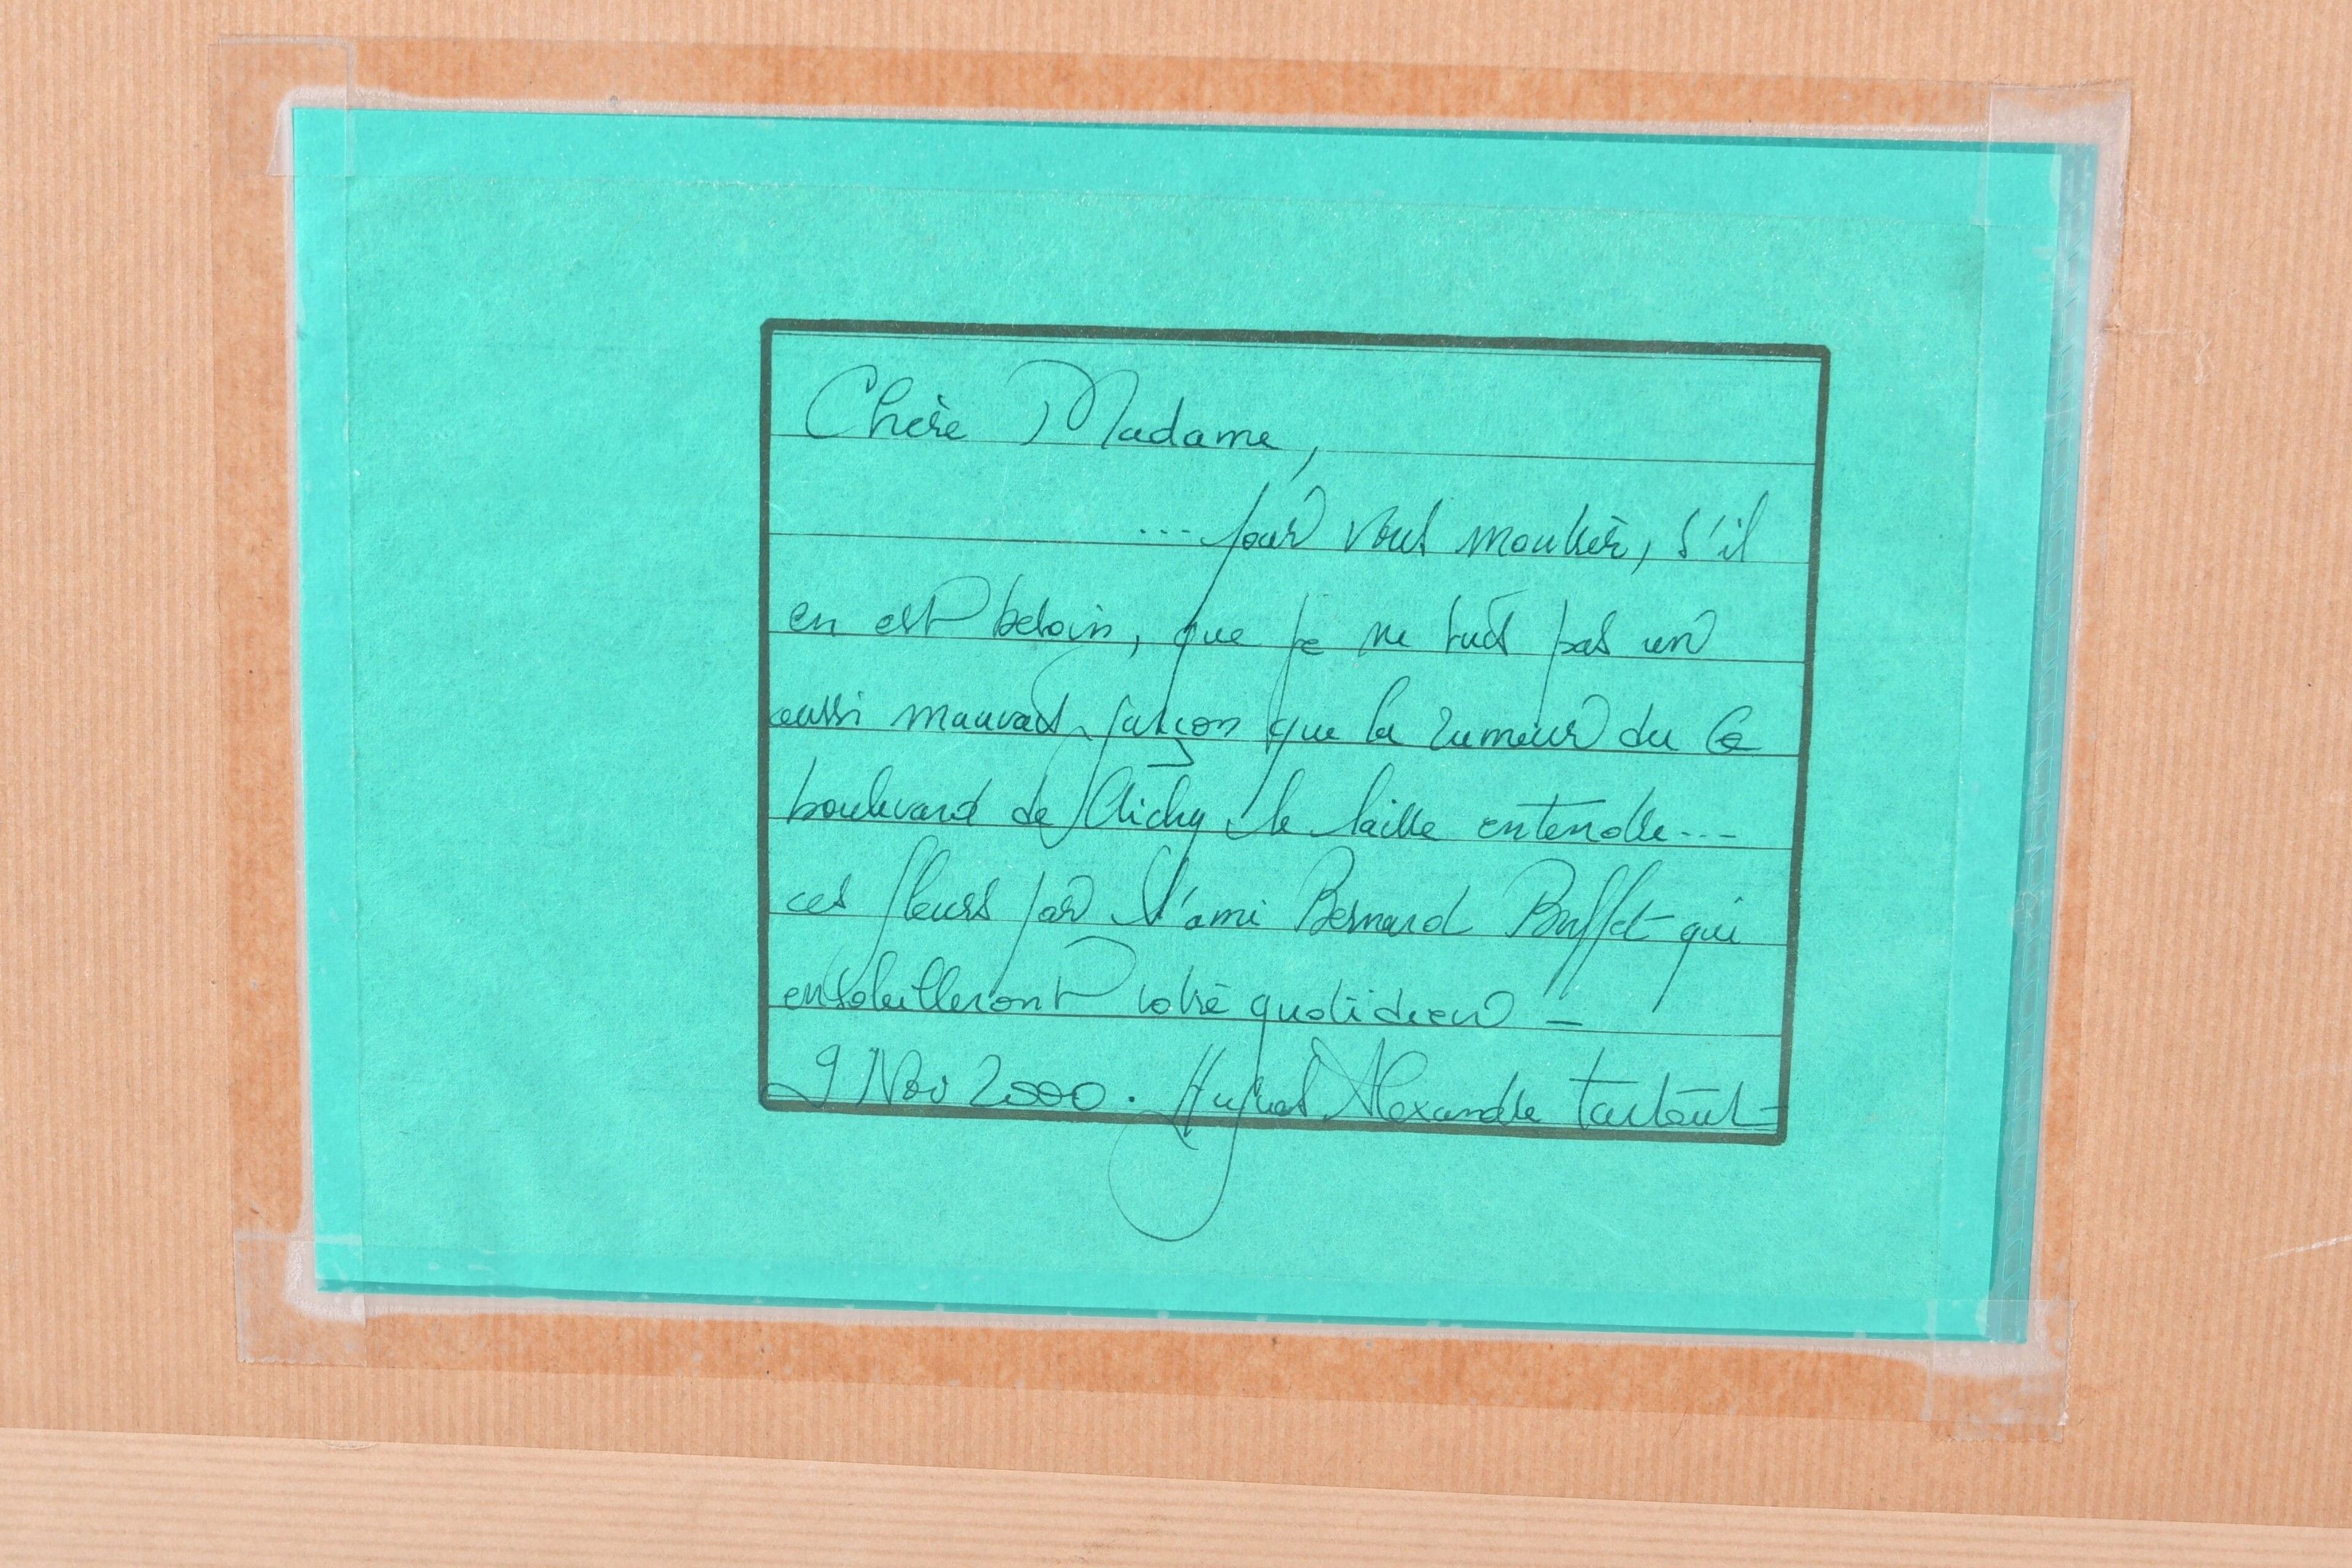 Chère Madame,
... pour vous montrer, s'il
en est besoin, que je ne suis pas un
aussi mauvais garçon que la rumeur du
boulevard de Clichy le laisse entendre...
ces fleurs par l'ami Bernard Buffet qui
ensoleilleront votre quotidien -
9 Nov 2000. Hugues Alexandre Tartaut -